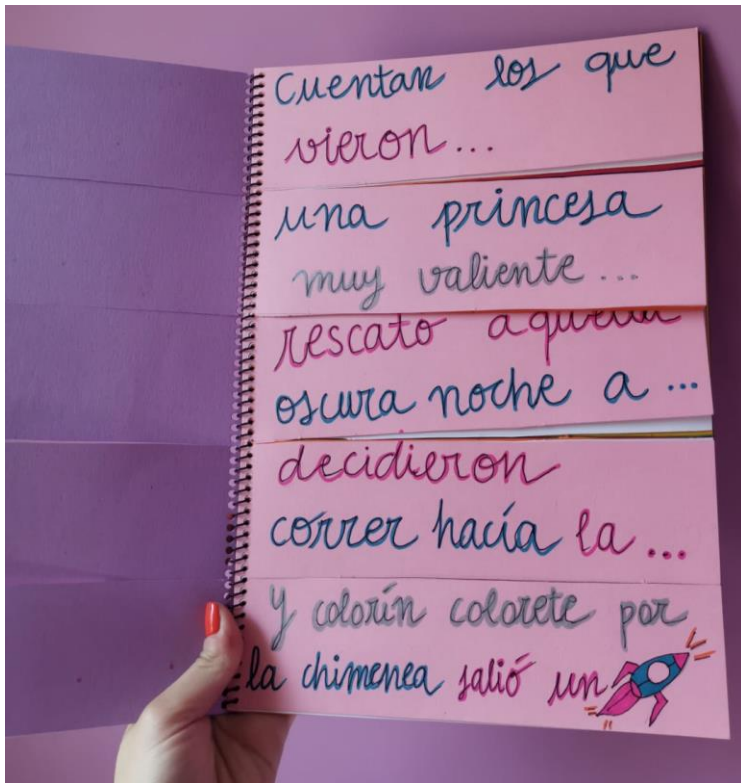 Cuentan los que
vieron...
una princesa
muy valiente...
rescato aquella
oscura noche a...
decidieron
correr hacía la...
Y colorín colorete por
la chimenea salió un